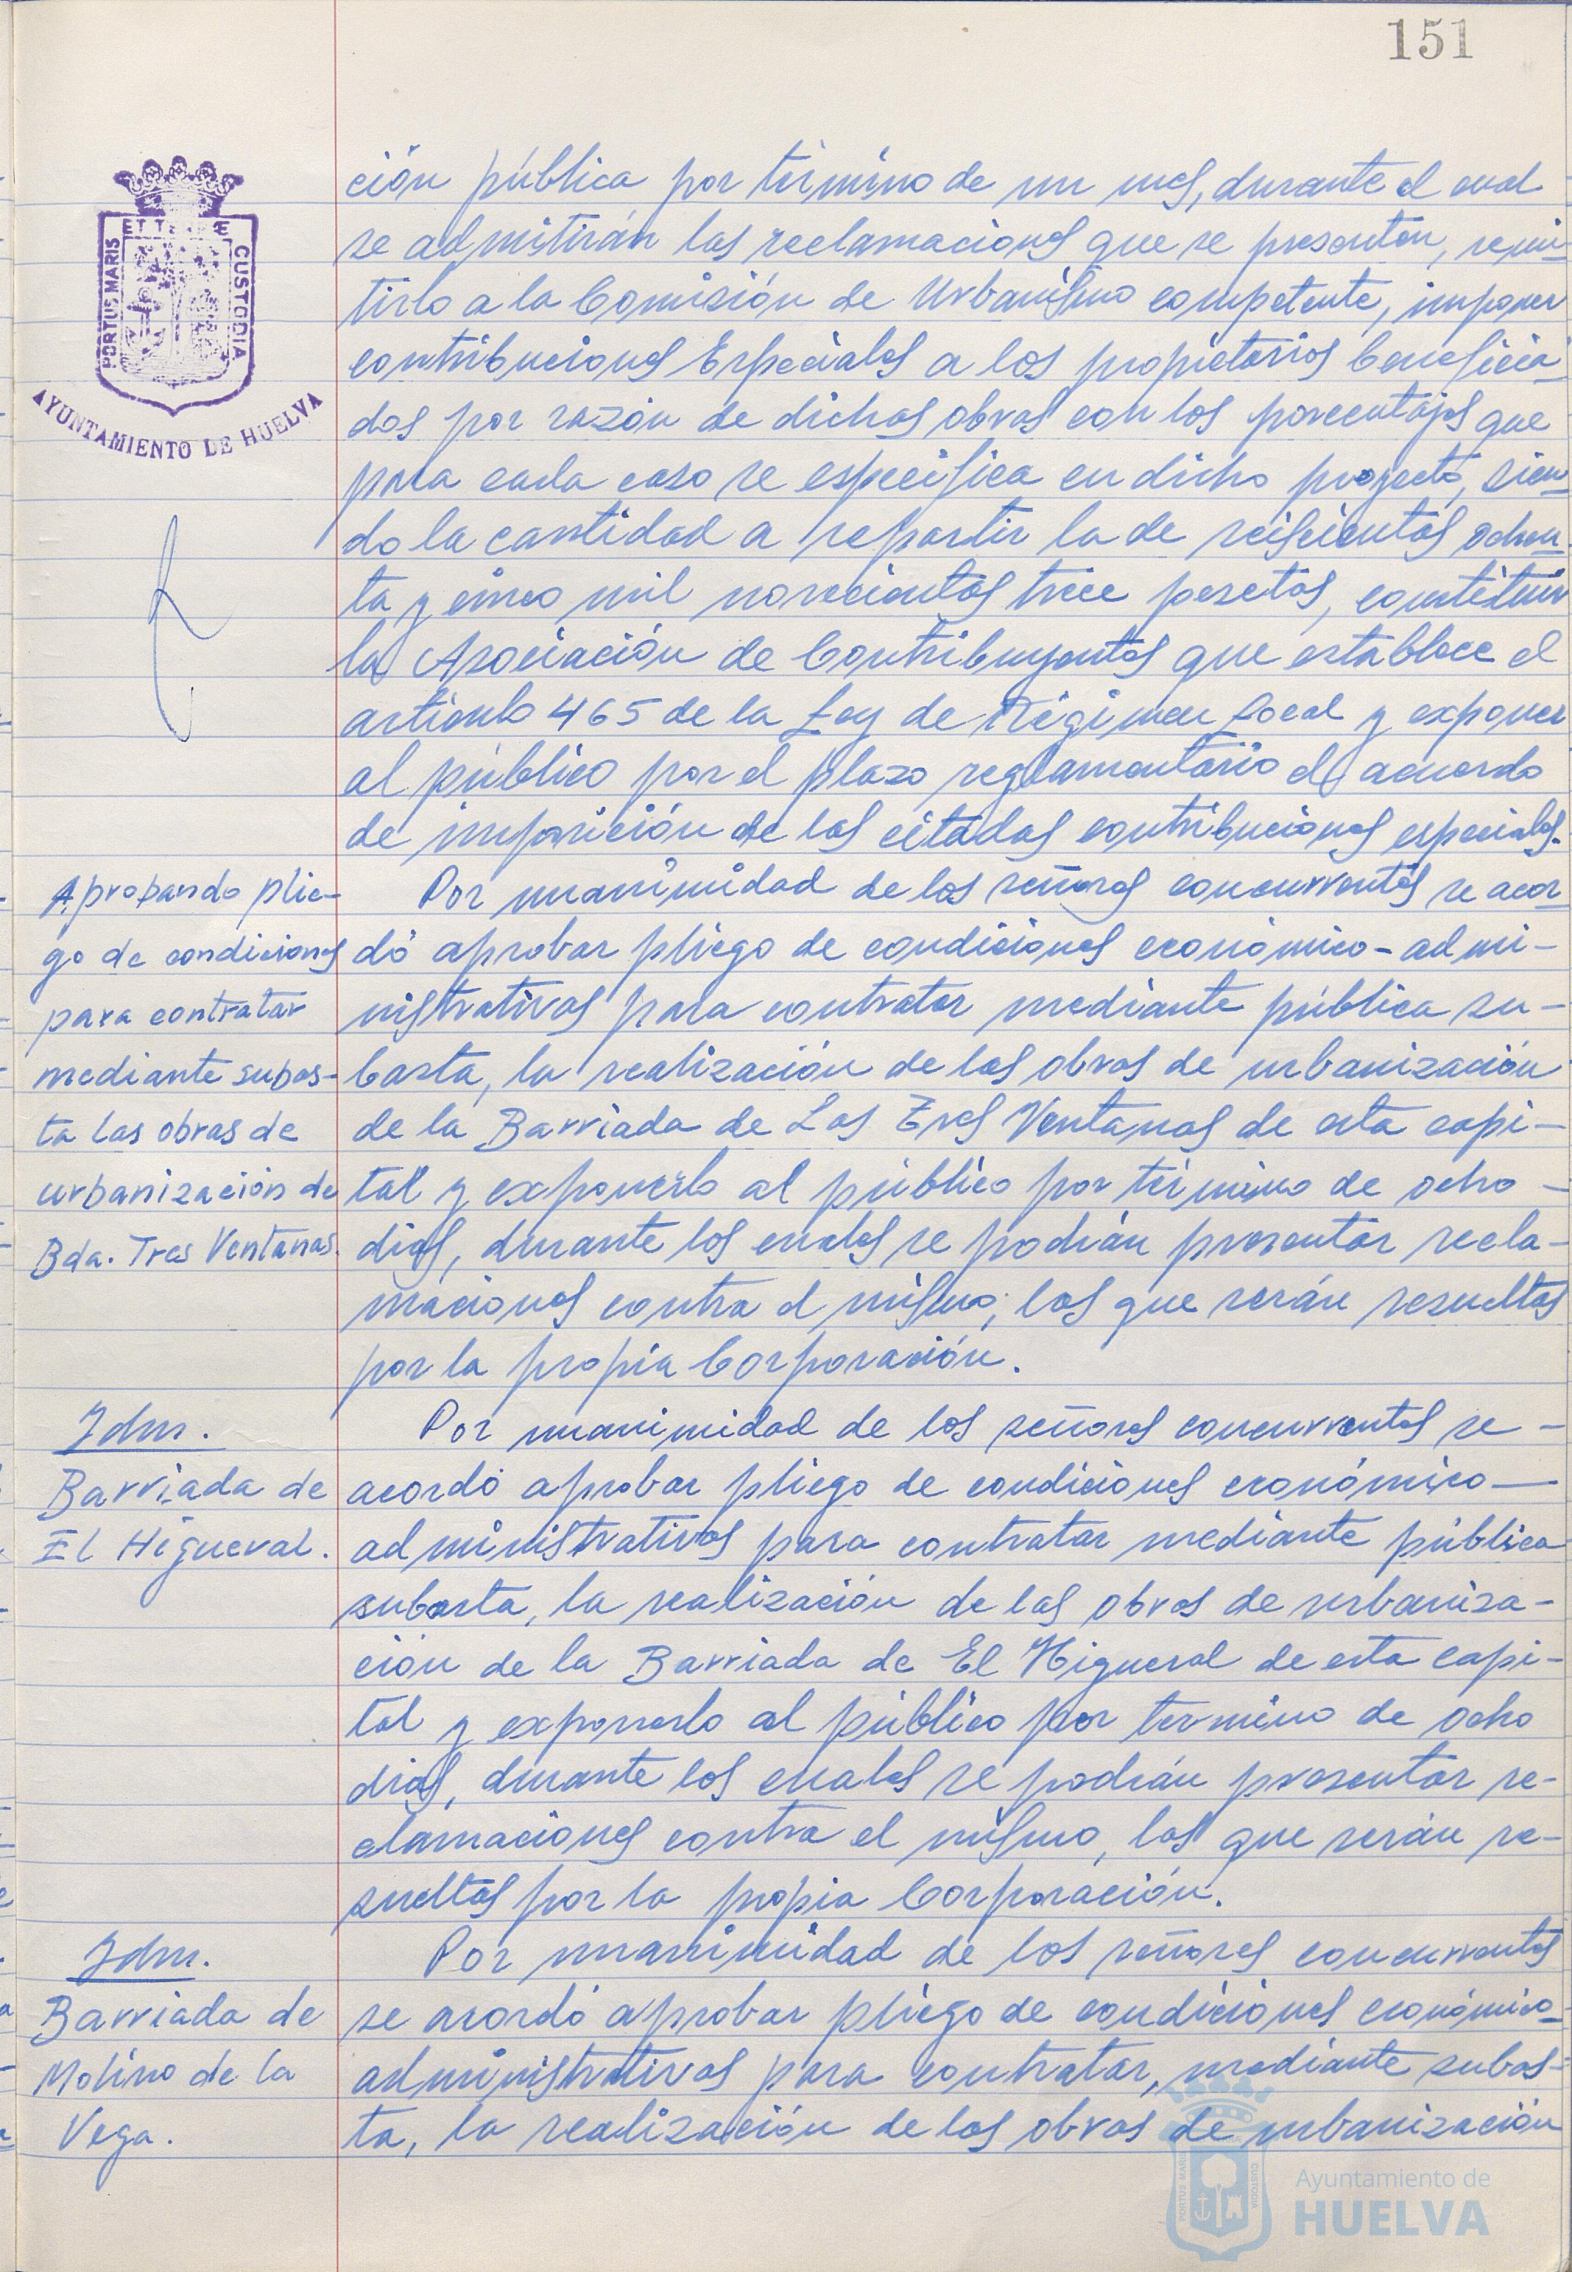 151
ET TERRÆ
PORTUS MARIS
CUSTODIA
AYUNTAMIENTO DE HUELVA
ción pública por término de un mes, durante el cual
se admitirán las reclamaciones que se presenten, remi-
tirlo a la Comisión de Urbanismo competente, imponer
contribuciones Especiales a los propietarios beneficia-
dos por razón de dichas obras con los porcentajes que
para cada caso se especifica en dicho proyecto, sien-
do la cantidad a repartir la de seiscientas ochen-
ta y cinco mil novecientas trece pesetas, constituir
la Asociación de Contribuyentes que establece el
artículo 465 de la Ley de Régimen Local y exponer
al público por el plazo reglamentario el acuerdo
de imposición de las citadas contribuciones especiales.
Aprobando plie-
go de condiciones
para contratar
mediante subas-
ta las obras de
urbanización de
Bda. Tres Ventanas.
Por unanimidad de los señores concurrentes se acor-
dó aprobar pliego de condiciones económico-admi-
nistrativas para contratar mediante pública su-
basta, la realización de las obras de urbanización
de la Barriada de Las Tres Ventanas de esta capi-
tal y exponerlo al público por término de ocho
dias, durante los cuales se podrán presentar recla-
maciones contra el mismo, las que serán resueltas
por la propia Corporación.
Idm.
Barriada de
El Higueral.
Por unanimidad de los señores concurrentes se
acordó aprobar pliego de condiciones económico-
administrativas para contratar mediante pública
subasta, la realización de las obras de urbaniza-
ción de la Barriada de El Higueral de esta capi-
tal y exponerlo al público por termino de ocho
dias, durante los cuales se podrán presentar re-
clamaciones contra el mismo, las que serán re-
sueltas por la propia Corporación.
Idm.
Barriada de
Molino de la
Vega.
Por unanimidad de los señores concurrentes
se acordó aprobar pliego de condiciones económico-
administrativas para contratar, mediante subas-
ta, la realización de las obras de urbanización
Ayuntamiento de
HUELVA